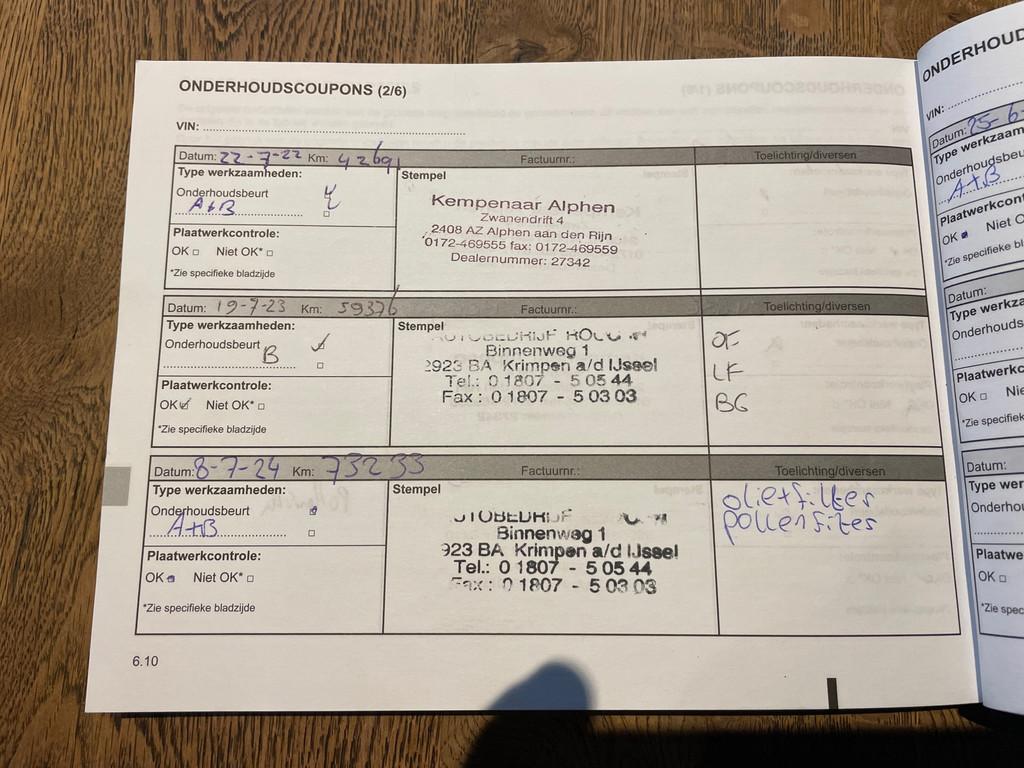 ONDERHOUDSCOUPONS (2/6)
VIN:
Datum: 22-7-22 Km: 42691 Factuurnr.: Toelichting/diversen
Type werkzaamheden:
Onderhoudsbeurt
A+B
Plaatwerkcontrole:
OK Niet OK*
*Zie specifieke bladzijde
Stempel
Kempenaar Alphen
Zwanendrift 4
2408 AZ Alphen aan den Rijn
0172-469555 fax: 0172-469559
Dealernummer: 27342
Datum: 19-7-23 Km: 59376 Factuurnr.: Toelichting/diversen
Type werkzaamheden:
Onderhoudsbeurt
B
Plaatwerkcontrole:
OK Niet OK*
*Zie specifieke bladzijde
Stempel
Binnenweg 1
2923 BA Krimpen a/d IJssel
Tel.: 0 1807 - 5 05 44
Fax : 0 1807 - 5 03 03
OF
LF
BG
Datum: 8-7-24 Km: 73233 Factuurnr.: Toelichting/diversen
Type werkzaamheden:
Onderhoudsbeurt
A+B
Plaatwerkcontrole:
OK Niet OK*
*Zie specifieke bladzijde
Stempel
Binnenweg 1
923 BA Krimpen a/d IJssel
Tel.: 0 1807 - 5 05 44
Fax : 0 1807 - 5 03 03
6.10
ONDERHOUD
VIN:
Datum: 25-6
Type werkzaam
Onderhoudsbeu
A+B
Plaatwerkcont
OK Niet O
*Zie specifieke b
Datum:
Type werkza
Onderhouds
Plaatwerkco
OK Nie
*Zie specifie
Datum:
Type wer
Onderhou
Plaatwe
OK
*Zie spec